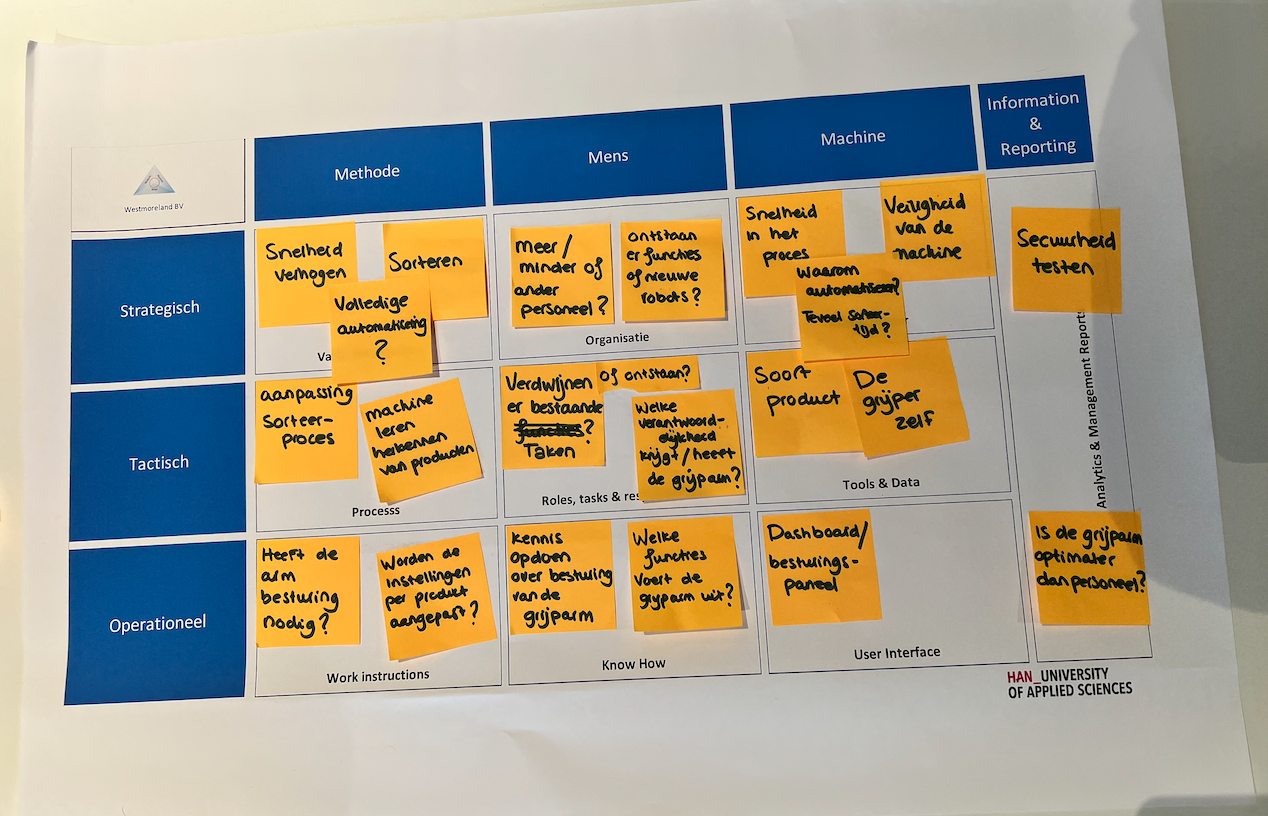 Westmoreland BV
Methode
Mens
Machine
Information
&
Reporting
Strategisch
Snelheid
verhogen
Sorteren
Volledige
automatisering
?
Va
meer/
minder of
ander
personeel?
ontstaan
er functies
of nieuwe
robots?
Organisatie
Snelheid
in het
proces
Veiligheid
van de
machine
Waarom
automatiseren?
Teveel sorteer-
tijd?
Secuurheid
testen
Tactisch
aanpassing
Sorteer-
proces
machine
leren
herkennen
van producten
Processs
Verdwijnen
er bestaande
functies?
Taken
of ontstaan?
Welke
verantwoord-
elijkheid
krijgt/heeft
de grijparm?
Roles, tasks & res
Soort
product
De
grijper
zelf
Tools & Data
Analytics & Management Reports
Operationeel
Heeft de
arm
besturing
nodig?
Worden de
instellingen
per product
aangepast?
Work instructions
kennis
opdoen
over besturing
van de
grijparm
Welke
functies
voert de
grijparm uit?
Know How
Dashboard/
besturings-
paneel
User Interface
Is de grijparm
optimaler
dan personeel?
HAN_UNIVERSITY
OF APPLIED SCIENCES